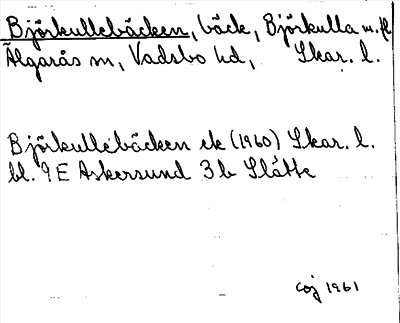 Björkullebäcken, bäck, Björkulla m.fl
Älgarås sn, Vadsbo hd, Skar. l.
Björkullebäcken ek (1960) Skar. l.
bl. 9E Askersund 3b Slätte
coj 1961